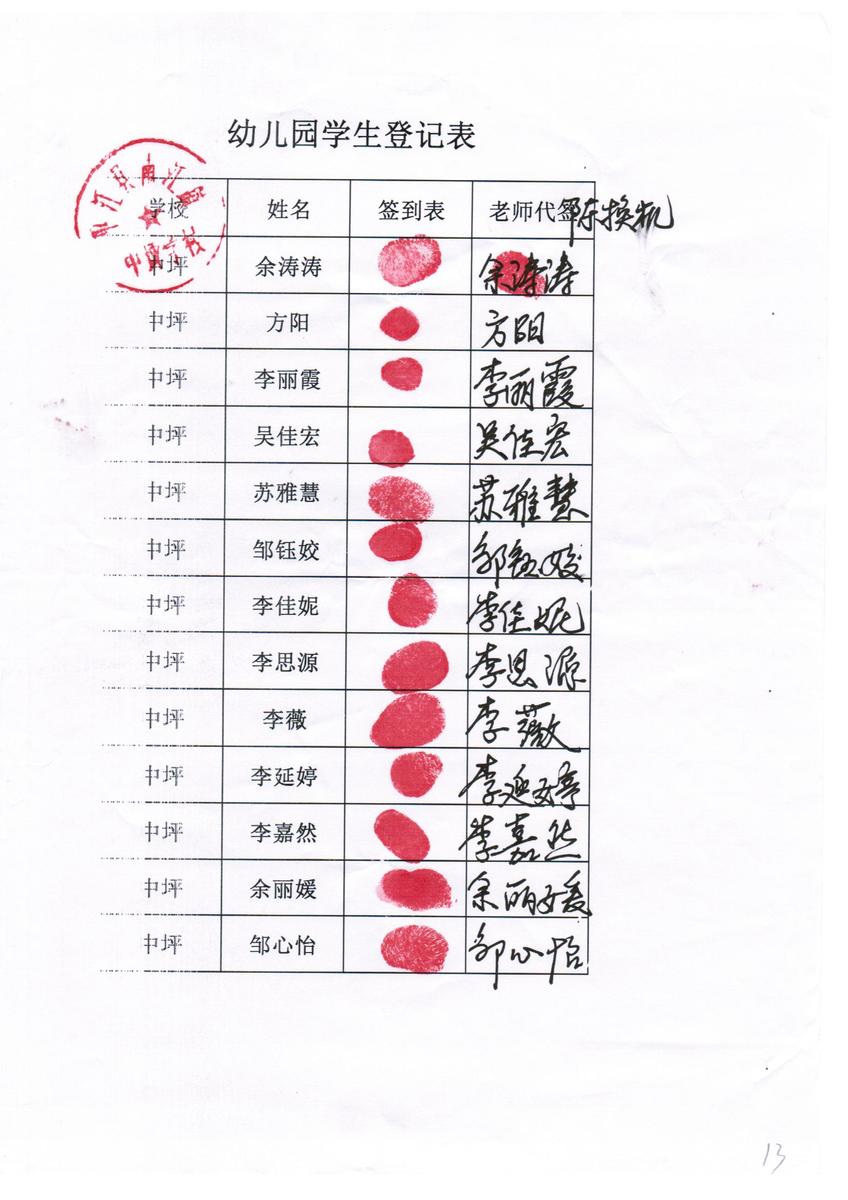 幼儿园学生登记表
学校 姓名 签到表 老师代签 陈换机
中坪 余涛涛 余涛涛
中坪 方阳 方阳
中坪 李丽霞 李丽霞
中坪 吴佳宏 吴佳宏
中坪 苏雅慧 苏雅慧
中坪 邹钰姣 邹钰姣
中坪 李佳妮 李佳妮
中坪 李思源 李思源
中坪 李薇 李薇
中坪 李延婷 李延婷
中坪 李嘉然 李嘉然
中坪 余丽媛 余丽媛
中坪 邹心怡 邹心怡
13